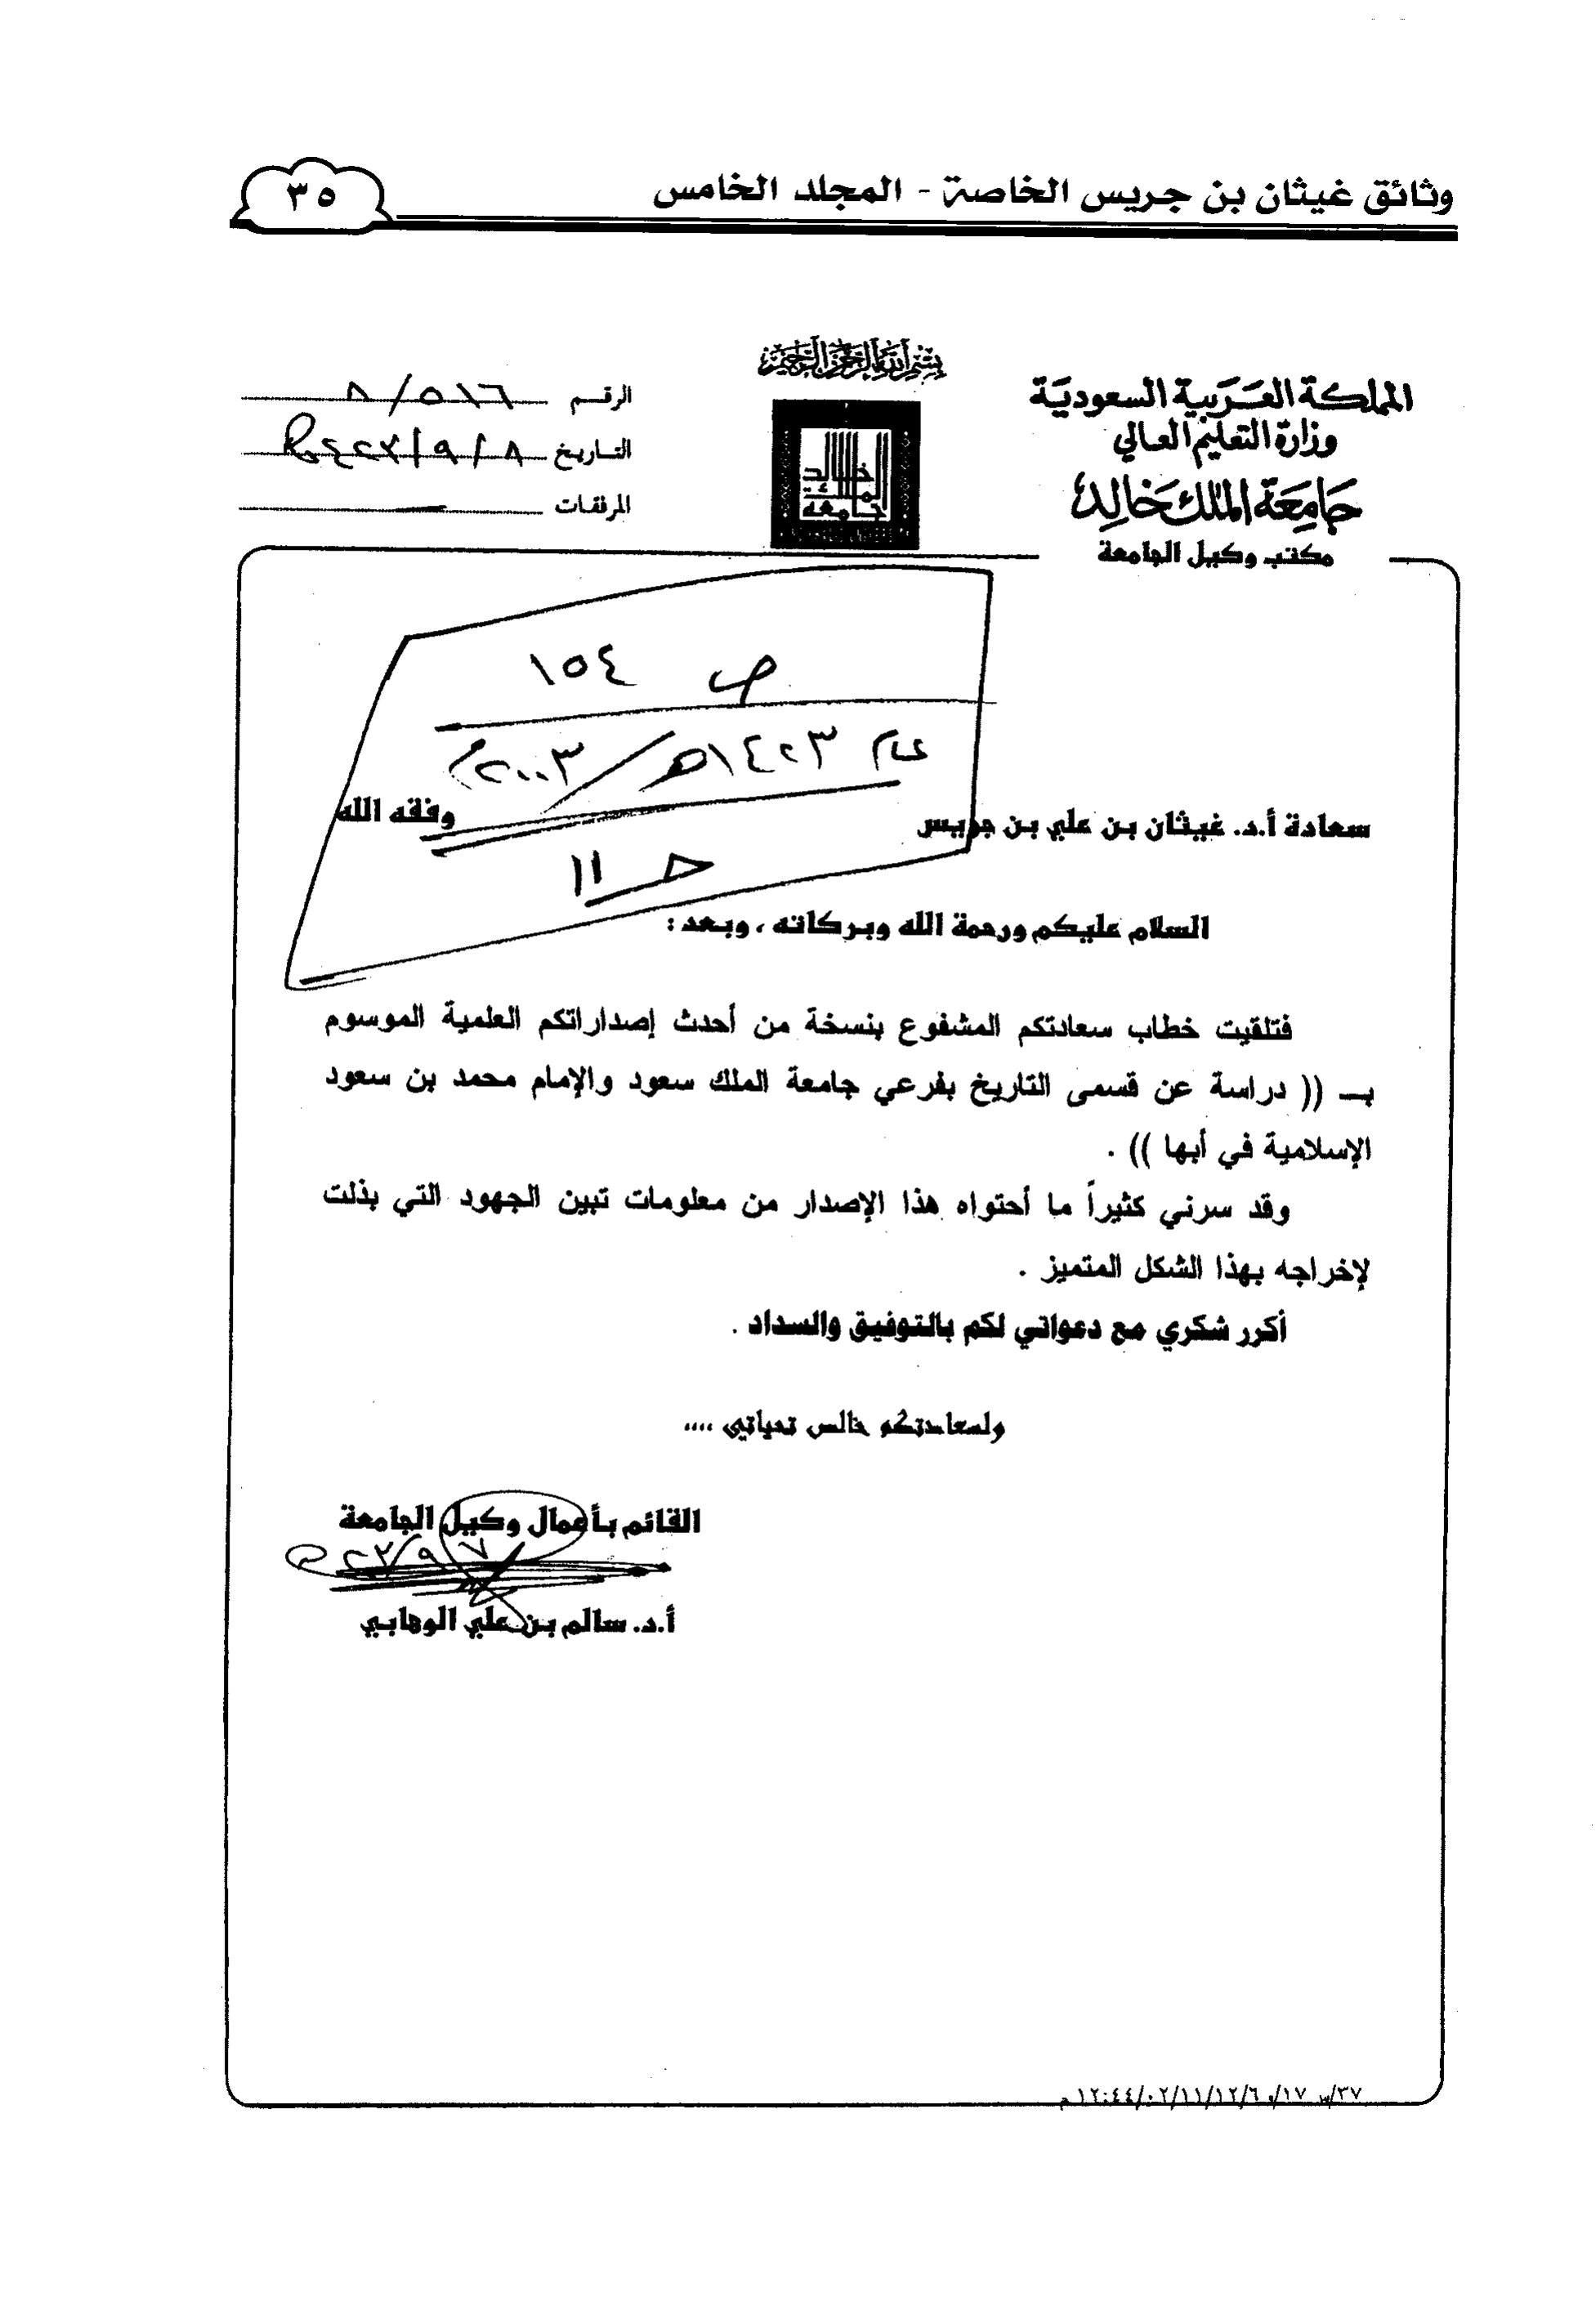 وثائق غيثان بن جريس الخاصة - المجلد الخامس
٣٥
بسم الله الرحمن الرحيم
المملكة العربية السعودية
وزارة التعليم العالي
جامعة الملك خالد
مكتب وكيل الجامعة
جامعة الملك خالد
الرقم ٨/٥١٦
التاريخ ٨/٩/٤٢٣
المرفقات
ص ١٥٤
عام ١٤٢٣هـ/٢٠٠٣م
حـ ١١
سعادة أ.د. غيثان بن علي بن جريس وفقه الله
السلام عليكم ورحمة الله وبركاته ، وبعد :
فتلقيت خطاب سعادتكم المشفوع بنسخة من أحدث إصداراتكم العلمية الموسوم
بـ (( دراسة عن قسمى التاريخ بفرعي جامعة الملك سعود والإمام محمد بن سعود
الإسلامية في أبها )) .
وقد سرني كثيراً ما أحتواه هذا الإصدار من معلومات تبين الجهود التي بذلت
لإخراجه بهذا الشكل المتميز .
أكرر شكري مع دعواتي لكم بالتوفيق والسداد .
ولسعادتكم خالص تحياتي ....
القائم بأعمال وكيل الجامعة
٧/٩/٢٣
أ.د. سالم بن علي الوهابي